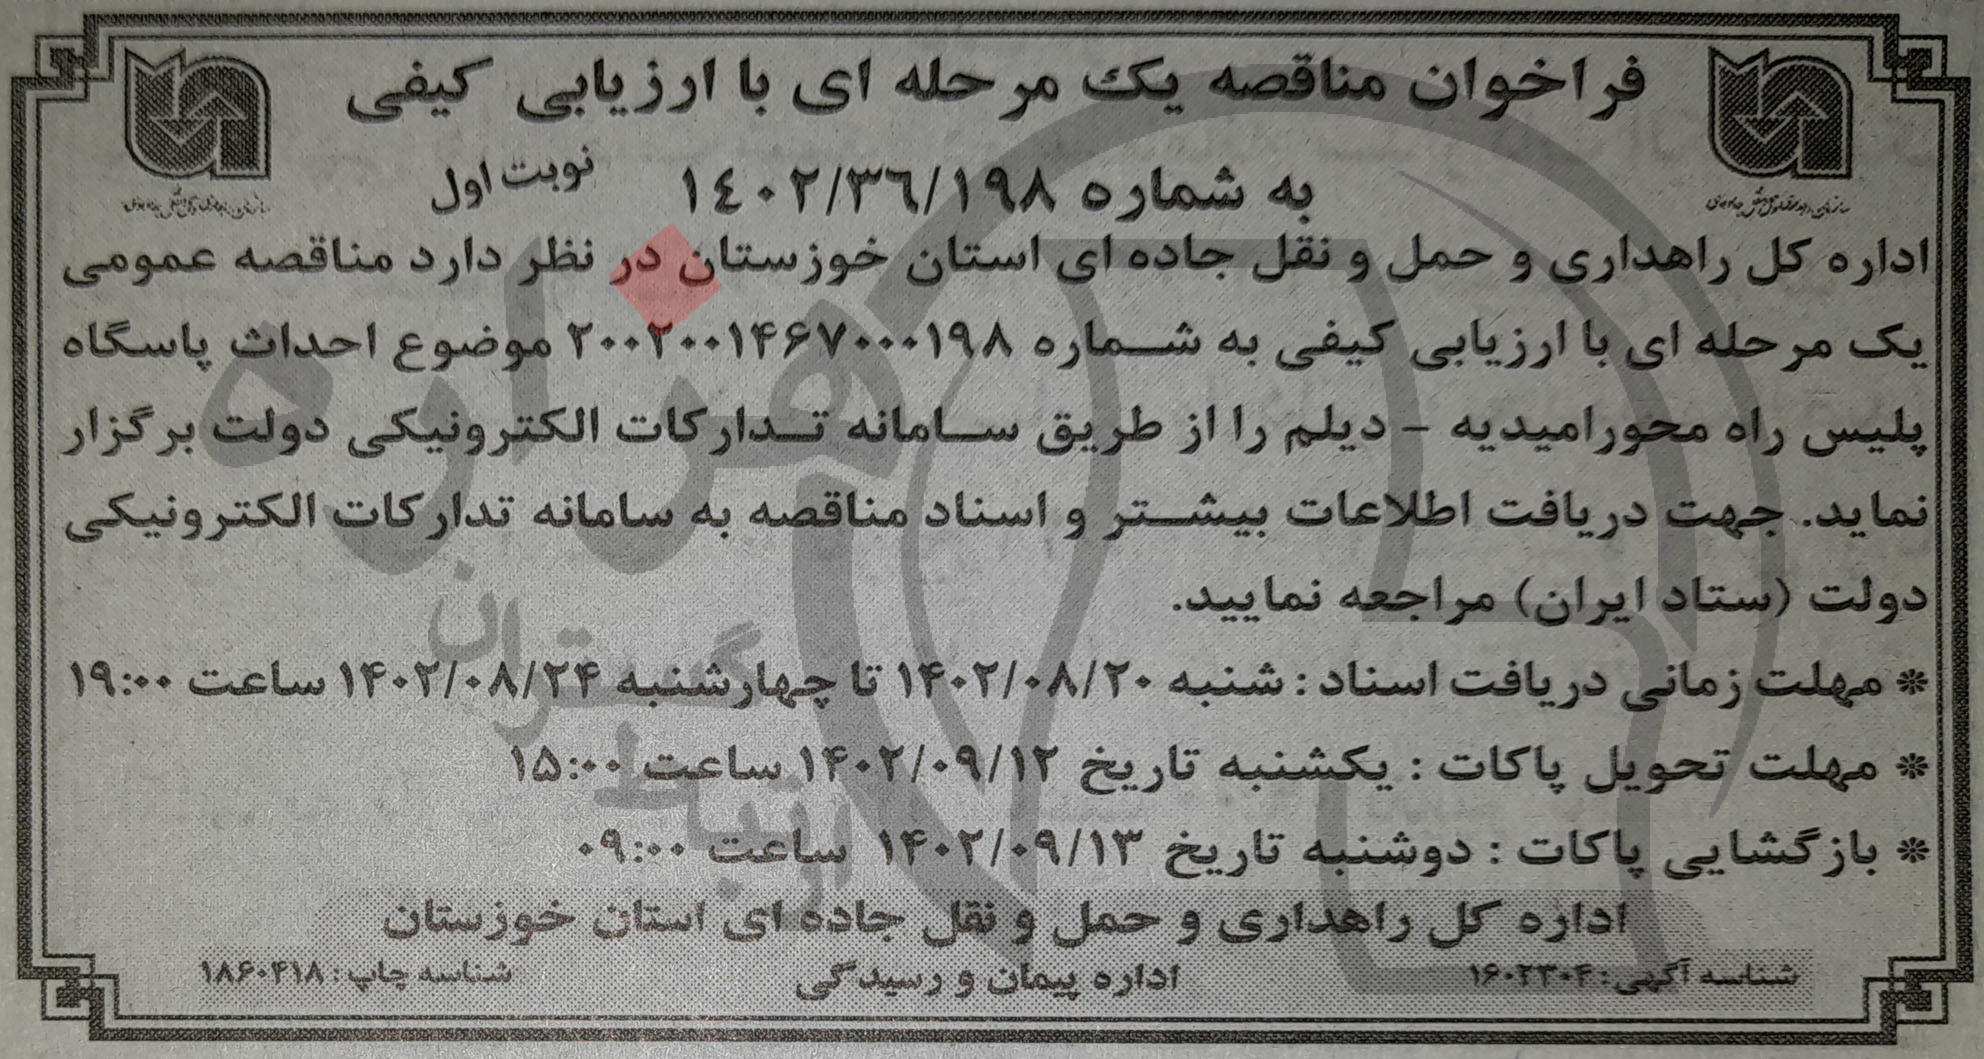 فراخوان مناقصه یک مرحله ای با ارزیابی کیفی
به شماره ۱۴۰۲/۳۶/۱۹۸ نوبت اول
اداره کل راهداری و حمل و نقل جاده ای استان خوزستان در نظر دارد مناقصه عمومی
یک مرحله ای با ارزیابی کیفی به شماره ۲۰۰۲۰۰۱۴۶۷۰۰۰۱۹۸ موضوع احداث پاسگاه
پلیس راه محورامیدیه - دیلم را از طریق سامانه تدارکات الکترونیکی دولت برگزار
نماید. جهت دریافت اطلاعات بیشتر و اسناد مناقصه به سامانه تدارکات الکترونیکی
دولت (ستاد ایران) مراجعه نمایید.
* مهلت زمانی دریافت اسناد : شنبه ۱۴۰۲/۰۸/۲۰ تا چهارشنبه ۱۴۰۲/۰۸/۲۴ ساعت ۱۹:۰۰
* مهلت تحویل پاکات : یکشنبه تاریخ ۱۴۰۲/۰۹/۱۲ ساعت ۱۵:۰۰
* بازگشایی پاکات : دوشنبه تاریخ ۱۴۰۲/۰۹/۱۳ ساعت ۰۹:۰۰
اداره کل راهداری و حمل و نقل جاده ای استان خوزستان
اداره پیمان و رسیدگی
شناسه آگهی: ۱۶۰۲۳۰۴
شناسه چاپ: ۱۸۶۰۴۱۸
هزاره
گستران
ارتباط